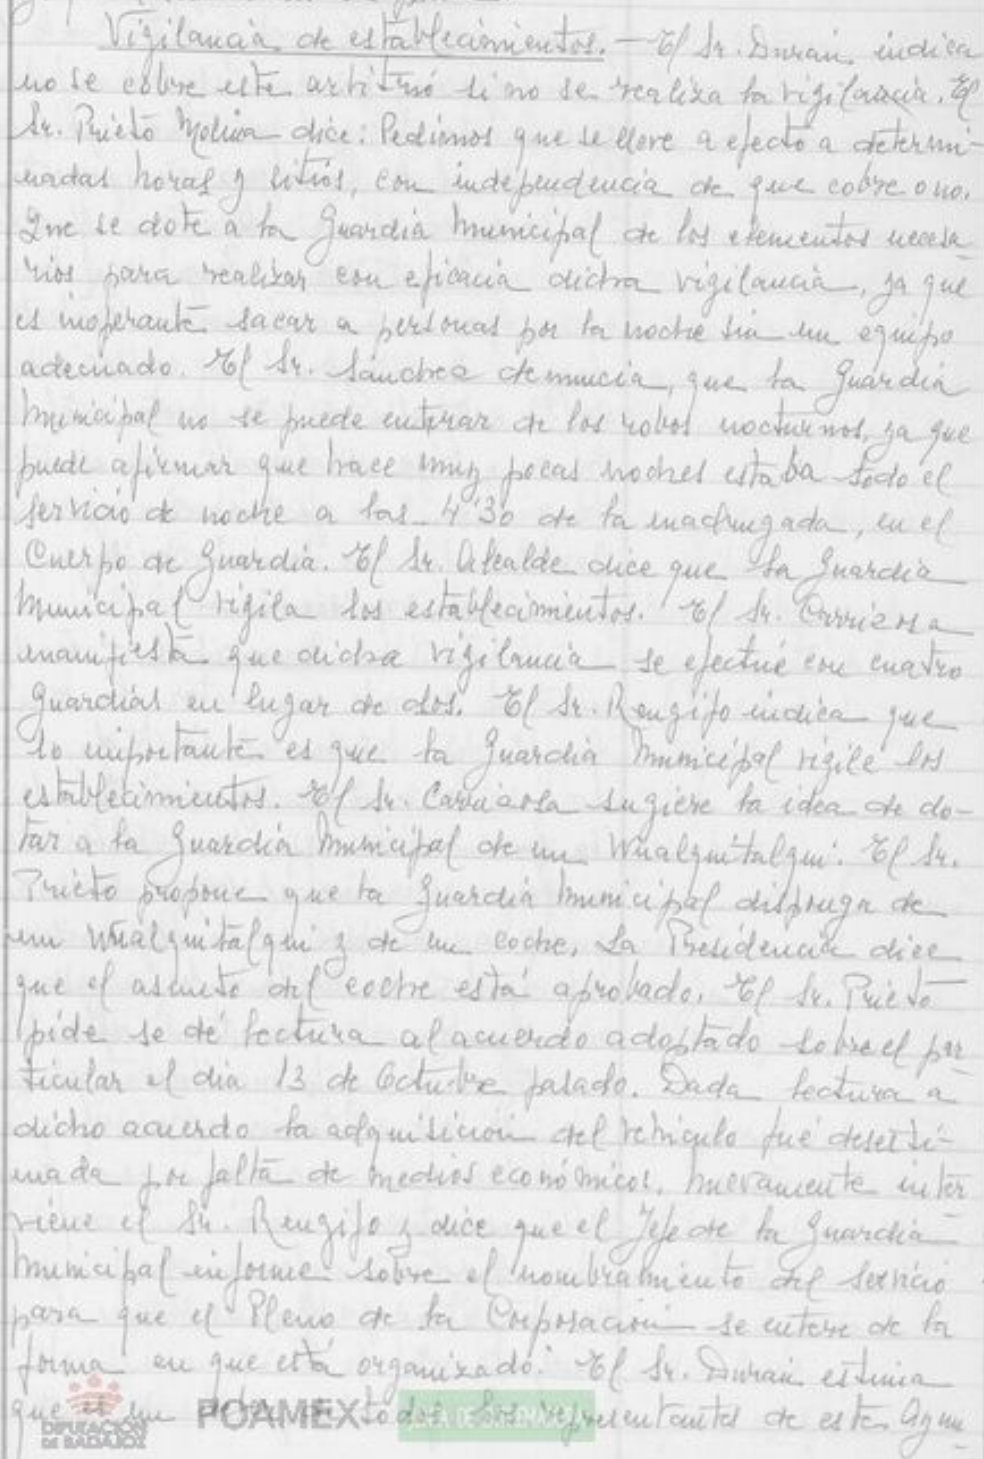 Vigilancia de establecimientos. — El Sr. Durán, indica
no se cobre este arbitrio si no se realiza la vigilancia. El
Sr. Prieto Molina dice: Pedimos que se lleve a efecto a determi-
nadas horas y sitios, con independencia de que cobre o no.
Que se dote a la Guardia Municipal de los elementos necesa-
rios para realizar con eficacia dicha vigilancia, ya que
es inoperante sacar a personas por la noche sin un equipo
adecuado. El Sr. Sánchez denuncia, que la Guardia
Municipal no se puede enterar de los robos nocturnos, ya que
puede afirmar que hace muy pocas noches estaba todo el
servicio de noche a las 4'30 de la madrugada, en el
Cuerpo de Guardia. El Sr. Alcalde dice que la Guardia
Municipal vigila los establecimientos. El Sr. Carrizosa
manifiesta que dicha vigilancia se efectúe con cuatro
Guardias en lugar de dos. El Sr. Rengifo indica que
lo importante es que la Guardia Municipal vigile los
establecimientos. El Sr. sugiere la idea de do-
tar a la Guardia Municipal de un Wualquitalqui. El Sr.
Prieto propone que la Guardia Municipal disponga de
un Wualquitalqui y de un coche. La Presidencia dice
que el asunto del coche está aprobado. El Sr. Prieto
pide se dé lectura al acuerdo adoptado sobre el par-
ticular el día 13 de Octubre pasado. Dada lectura a
dicho acuerdo la adquisición del vehículo fué desesti-
mada por falta de medios económicos. Nuevamente inter-
viene el Sr. Rengifo y dice que el Jefe de la Guardia
Municipal informe sobre el nombramiento del servicio
para que el Pleno de la Corporación se entere de la
forma en que está organizado. El Sr. Durán estima
que es un todos los representantes de este Ayun-
DIPUTACIÓN
DE BADAJOZ
POAMEX